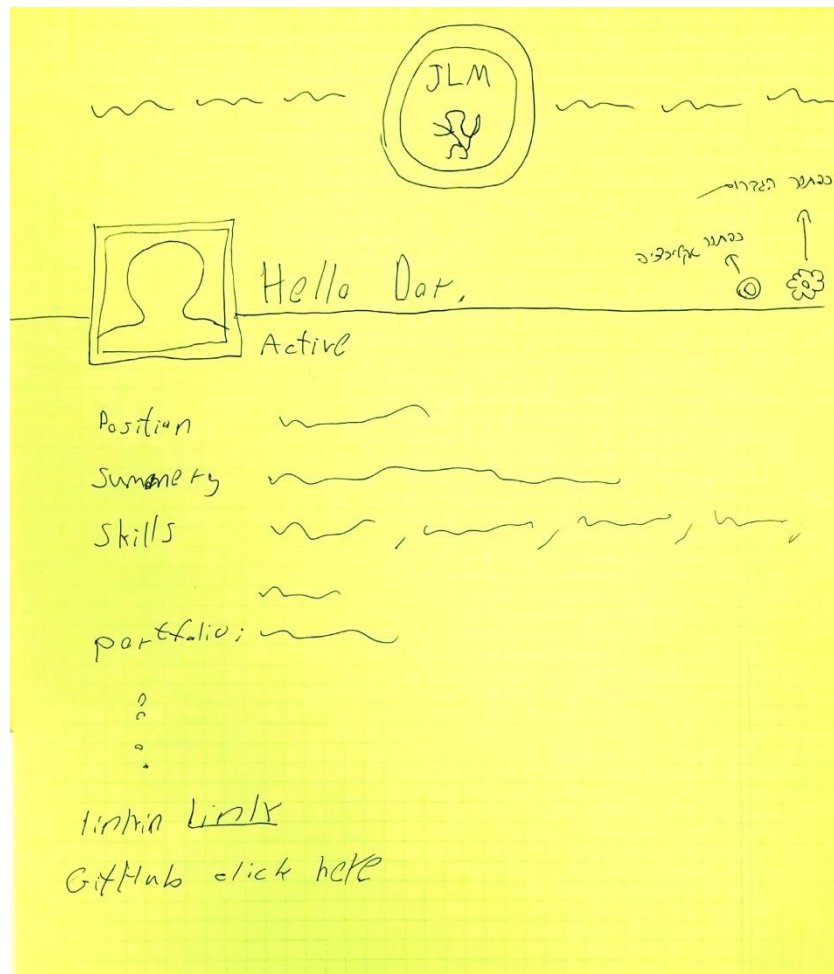 JLM
כפתור הגדרות
כפתור אקטיבציה
Hello Dor,
Active
Position
Summery
Skills
portfolio:
Link
GitHub click here